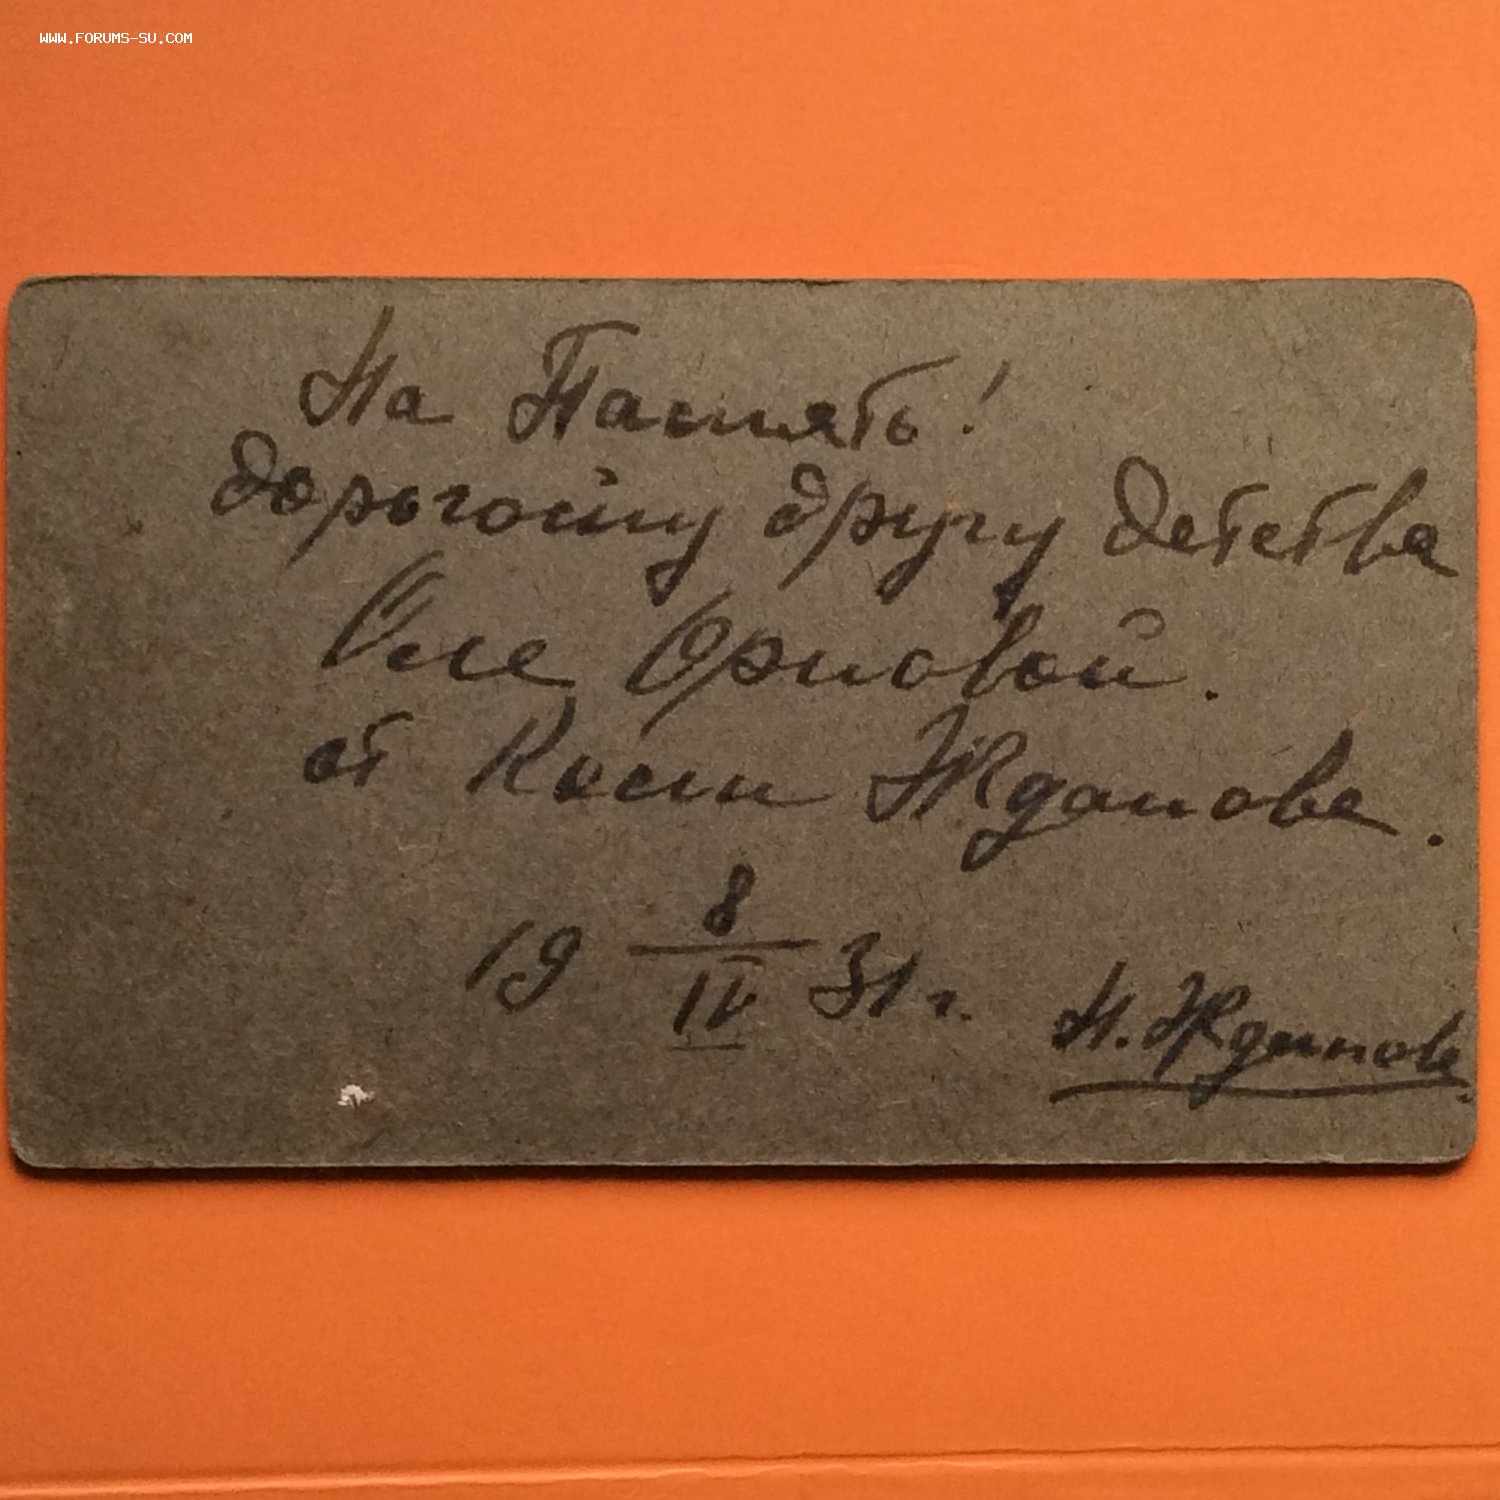 WWW.FORUMS-SU.COM
На Память!
дорогому другу детства
Оле Орловой.
от Коли Жданова.
19 8/IV 31 г.
Н. Жданов.